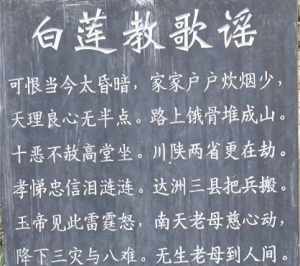 白莲教歌谣
可恨当今太昏暗，家家户户炊烟少，
天理良心无半点。路上饿骨堆成山。
十恶不赦高堂坐。川陕两省更在劫。
孝悌忠信泪涟涟。达洲三县把兵搬。
玉帝见此雷霆怒，南天老母慈心动，
降下三灾与八难。无生老母到人间。